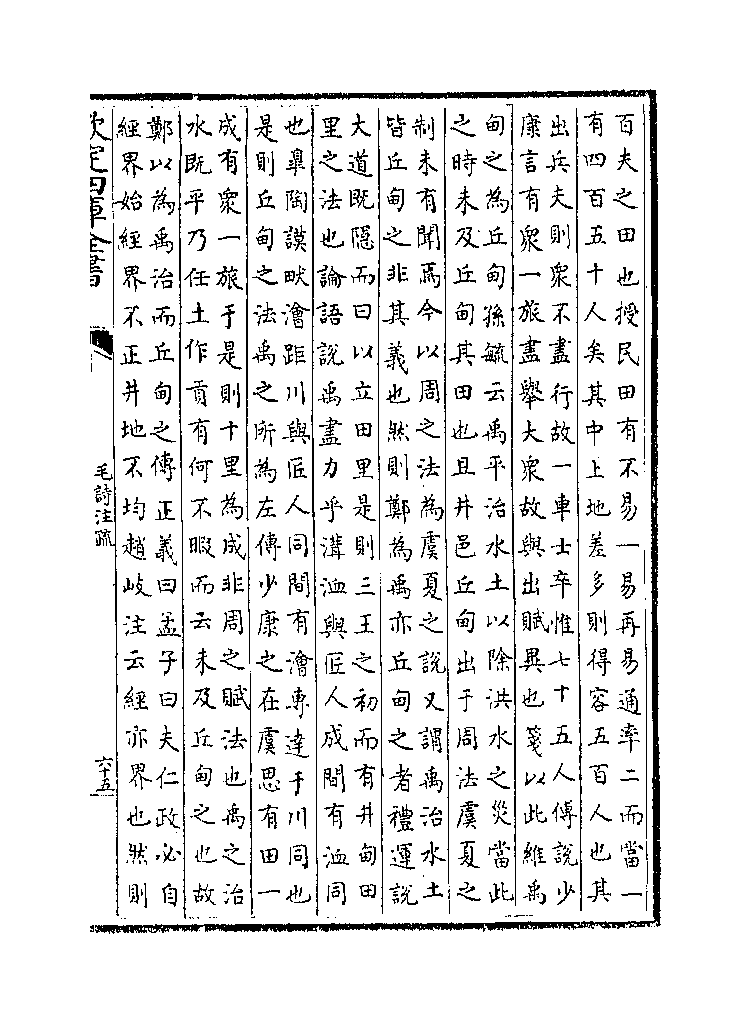 百夫之田也授民田有不易一易再易通率二而當一
有四百五十人矣其中上地差多則得容五百人也其
出兵夫則衆不盡行故一車士卒惟七十五人傳說少
康言有衆一旅盡舉大衆故與出賦異也箋以此維禹
甸之為丘甸孫毓云禹平治水土以除洪水之災當此
之時未及丘甸其田也且井邑丘甸出于周法虞夏之
制未有聞焉今以周之法為虞夏之說又謂禹治水土
皆丘甸之非其義也然則鄭為禹亦丘甸之者禮運說
大道既隱而曰以立田里是則三王之初而有井甸田
里之法也論語說禹盡力乎溝洫與匠人成間有洫同
也臯陶謨畎澮距川與匠人同間有澮專達于川同也
是則丘甸之法禹之所為左傳少康之在虞思有田一
成有衆一旅于是則十里為成非周之賦法也禹之治
水既平乃任土作貢有何不暇而云未及丘甸之也故
鄭以為禹治而丘甸之傳正義曰孟子曰夫仁政必自
經界始經界不正井地不均趙岐注云經亦界也然則
欽定四庫全書
毛詩注疏
六十五